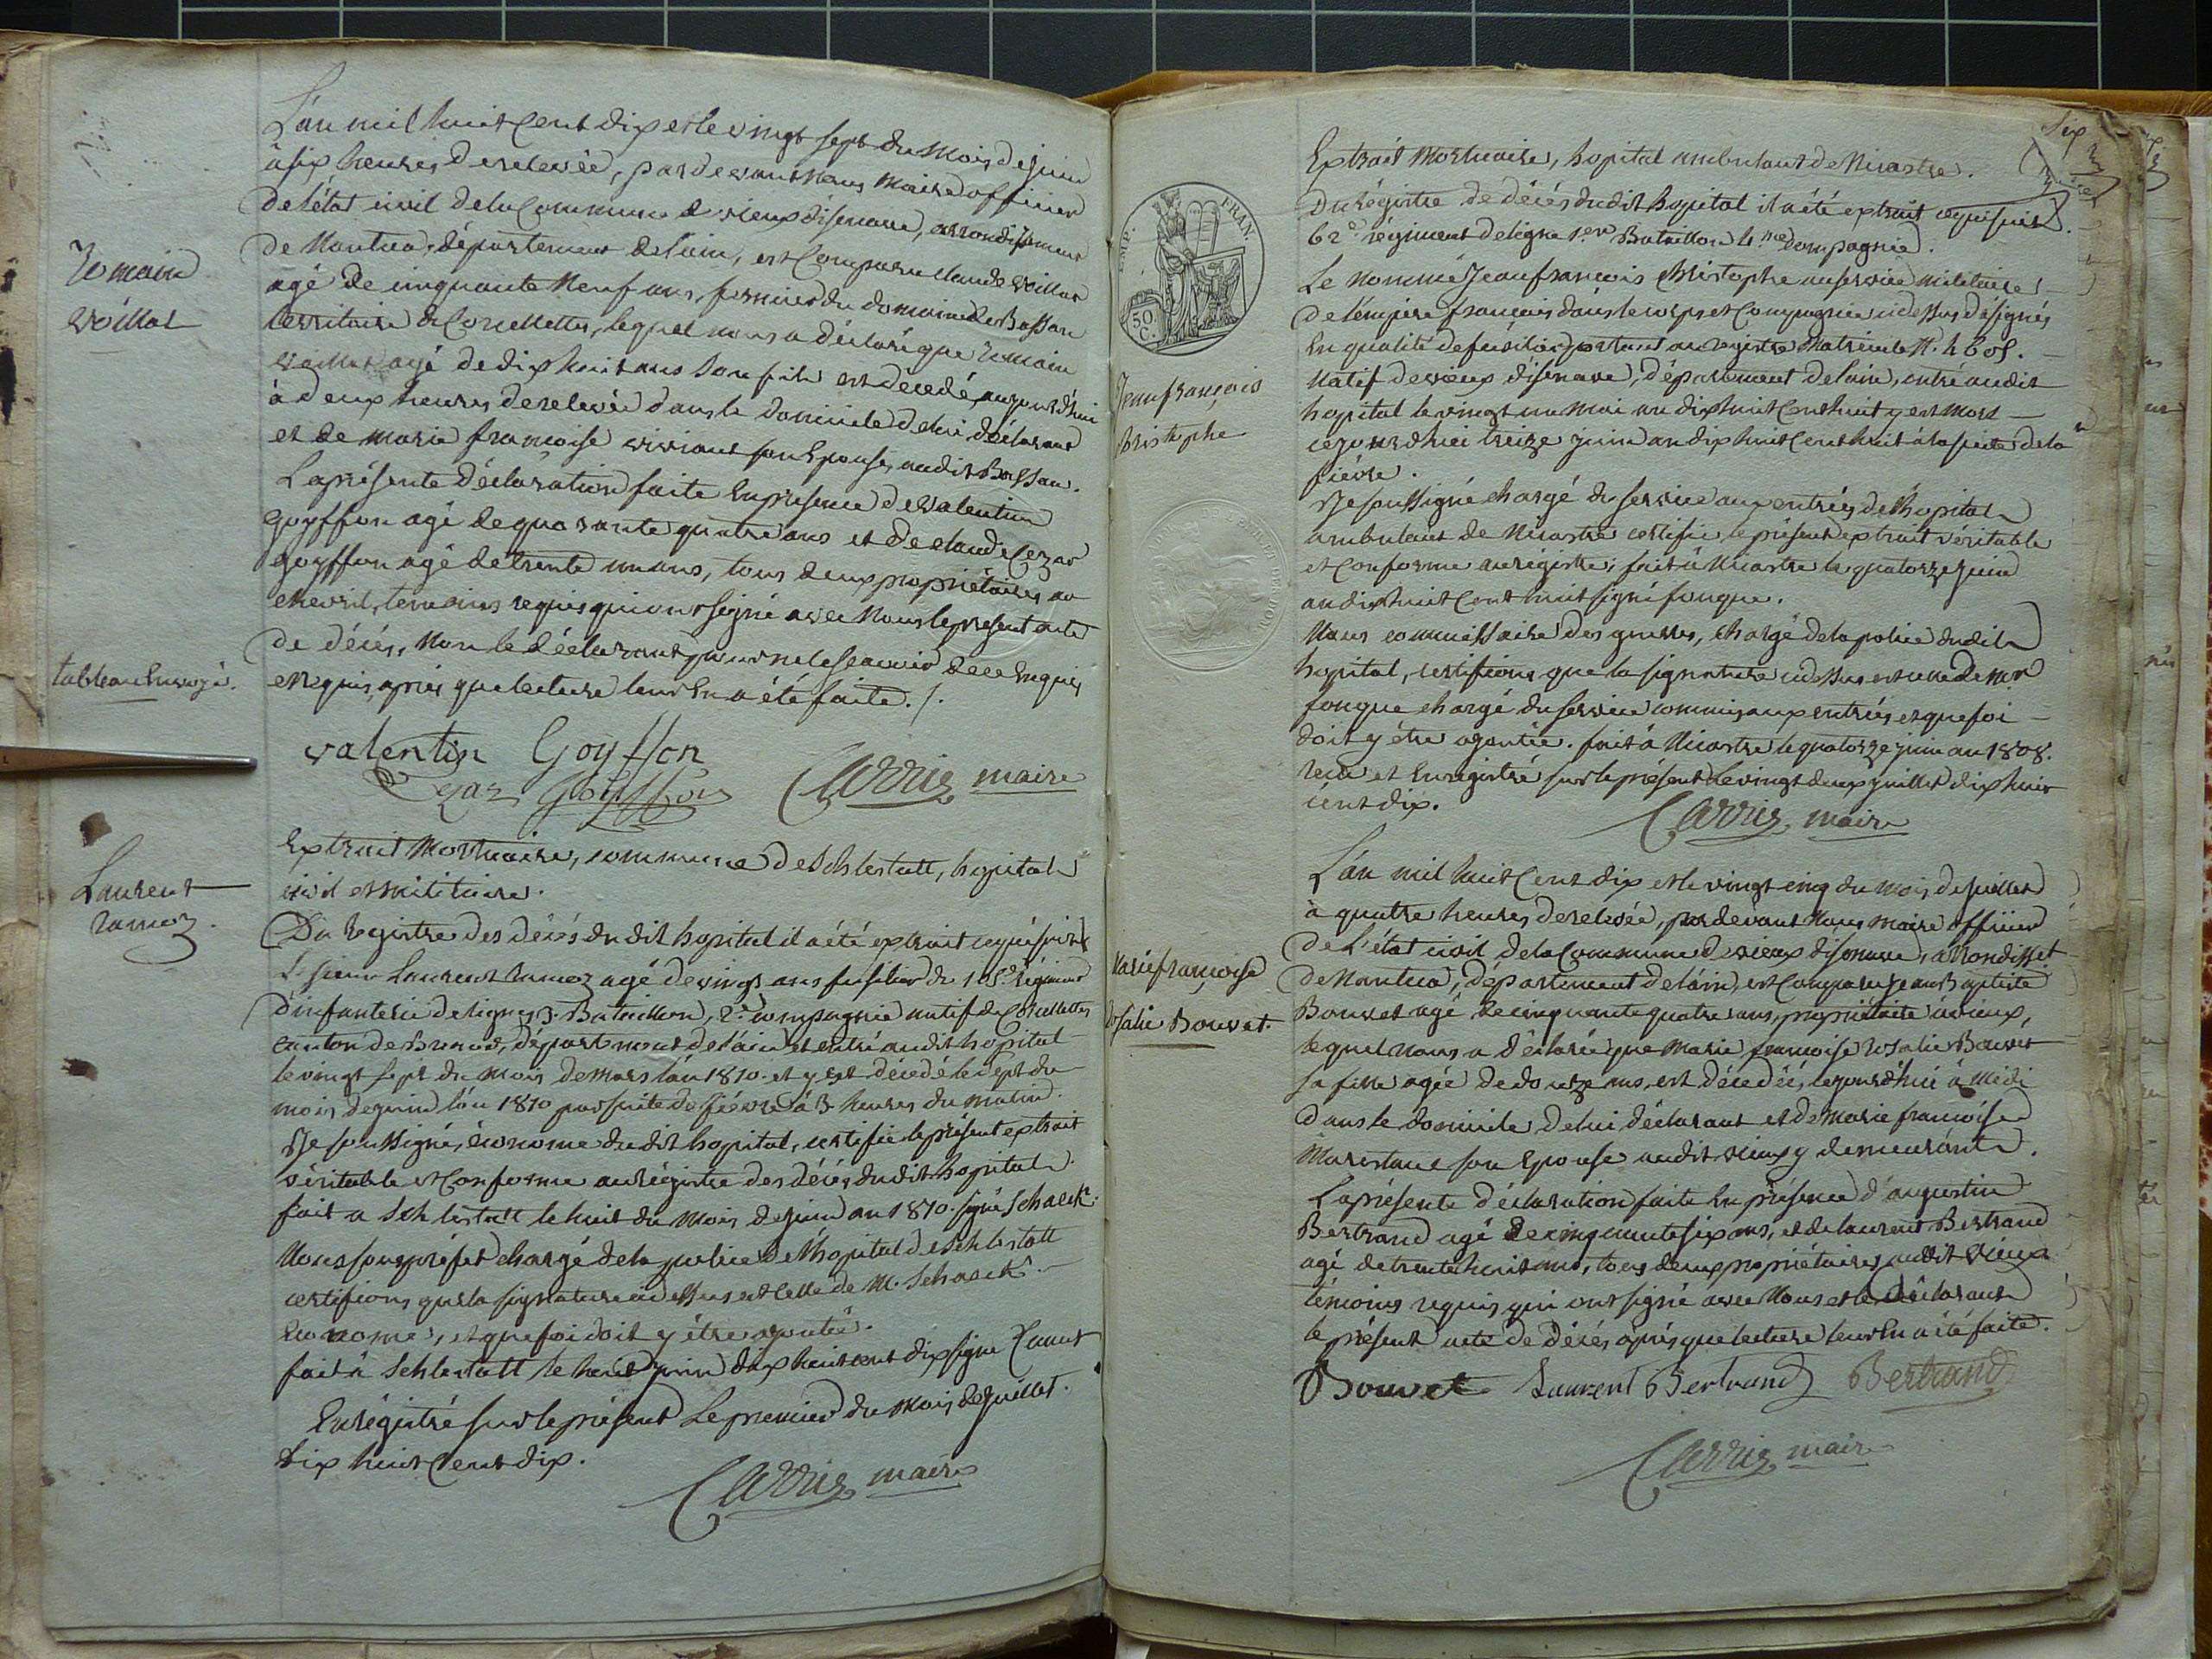 L'an mil huit Cent dix et le vingt sept du Mois de juin
à six heures de relevée, par devant Nous Maire officier
de l'état civil de la Commune de vieux d'isenave, arrondissement
de Nantua, département de l'ain, est Comparu Claude
agé de cinquante Neuf ans, fermier du domaine de Bassan
territoire de Corcellettes, lequel nous a déclaré que
agé de dix huit ans son fils est décedé, aujourd'hui
à deux heures de relevée dans le domicile de lui déclarant
et de marie françoise son Epouse, audit Bassan.
La présente déclaration faite En présence de valentin
goyffon agé de quarante quatre ans et de claude Cezar
goyffon agé de trente un ans, tous deux propriétaires au
chevril, temoins requis qui ont signé avec Nous le présent acte
de décés, Non le déclarant pour ne le scavoir de ce Enquis
et Requis, après que lecture leur En a été faite. /.
tableau Envoyé.
valentin Goyffon
Cezar Goyffon Carrier maire
Laurent
ramez
Extrait Mortuaire, commune de Schlestatt, hopital
civil et militaire.
Du Registre des décés du dit hopital il a été extrait ce qui suit
Le sieur Laurent ramez agé de vingt ans fusilier du 105e régiment
d'infanterie de ligne, 3. Bataillon, 2e compagnie natif de
canton de Brenod, département de l'ain est entré audit hopital
le vingt sept du Mois de Mars l'an 1810. et y est décedé le sept du
mois de juin l'an 1810 par suite de fiévre à 3 heures du matin.
Je soussigné, économe du dit hopital, certifie le présent extrait
véritable et Conforme au régistre des décés du dit hopital
fait a Schlestatt le huit du Mois de juin an 1810. signé Schaeck.
Nous sous préfet chargé de la police de l'hopital de Schlestatt
certifions que la signature ci dessus est Celle de M. Schaeck
Economé, et que foi doit y être ajoutée.
fait à Schlestatt le huit juin dix huit cent dix signé
Enrégistré sur le présent Le premier du Mois de Juillet
dix huit Cent dix.
Carrier maire
Six
EMP. FRAN.
50 C.
Extrait Mortuaire, hopital ambulant de Nicastre.
Du Régistre de décés du dit hopital il a été extrait ce qui suit
62e régiment de ligne 1er Bataillon 4me Compagnie.
Jean françois
christophe
Le nommé Jean francois christophe au service militaire
de l'empire français dans le corps et Compagnie ci dessus désignés
En qualité de fusilier, portant au registre Matricule N.
Natif de vieux d'isenave, département de l'ain, entré audit
hopital le vingt un mai an dix huit Cent huit y est mort
ce jourd'hui treize juin an dix huit Cent huit à la suite de la
fiévre.
Je soussigné chargé du service aux entrées de l'hopital
ambulant de Nicastre certifie, le présent extrait véritable
et Conforme au régistre; fait à Nicastre le quatorze juin
an dix huit Cent huit signé fouque.
Nous commissaire des guerres, chargé de la police du dit
hopital, certifions que la signature ci dessus est celle de Mr
fouque chargé du service commis aux entrées et que foi
doit y être ajoutée. fait à Nicastre le quatorze juin an 1808.
recu et Enregistré sur le présent Le vingt deux juillet dix huit
cent dix.
Carrier maire
Marie françoise
rosalie Bouvet.
L'an mil huit Cent dix et le vingt cinq du mois de juillet
à quatre heures de relevée, par devant Nous maire officier
de L'état civil de la Commune de vieux d'isenave, arrondisst
de Nantua, département de l'ain, est Comparu Jean Baptiste
Bouvet agé de cinquante quatre ans, propriétaire à vieux,
lequel Nous a déclaré que Marie francoise rosalie Bouvet
sa fille agée de douze ans, est décedée, ce jourd'hui à Midi
dans le domicile de lui déclarant et de Marie francoise
son Epouse audit vieux y demeurante.
La présente déclaration faite En présence d'augustin
Bertrand agé de cinquante six ans, et de laurent Bertrand
agé de trente huit ans, tous deux propriétaires audit vieux
témoins requis qui ont signé avec Nous et le déclarant
le présent acte de décés après que lecture leur En a été faite.
Bouvet Laurent Bertrand Bertrand
Carrier maire